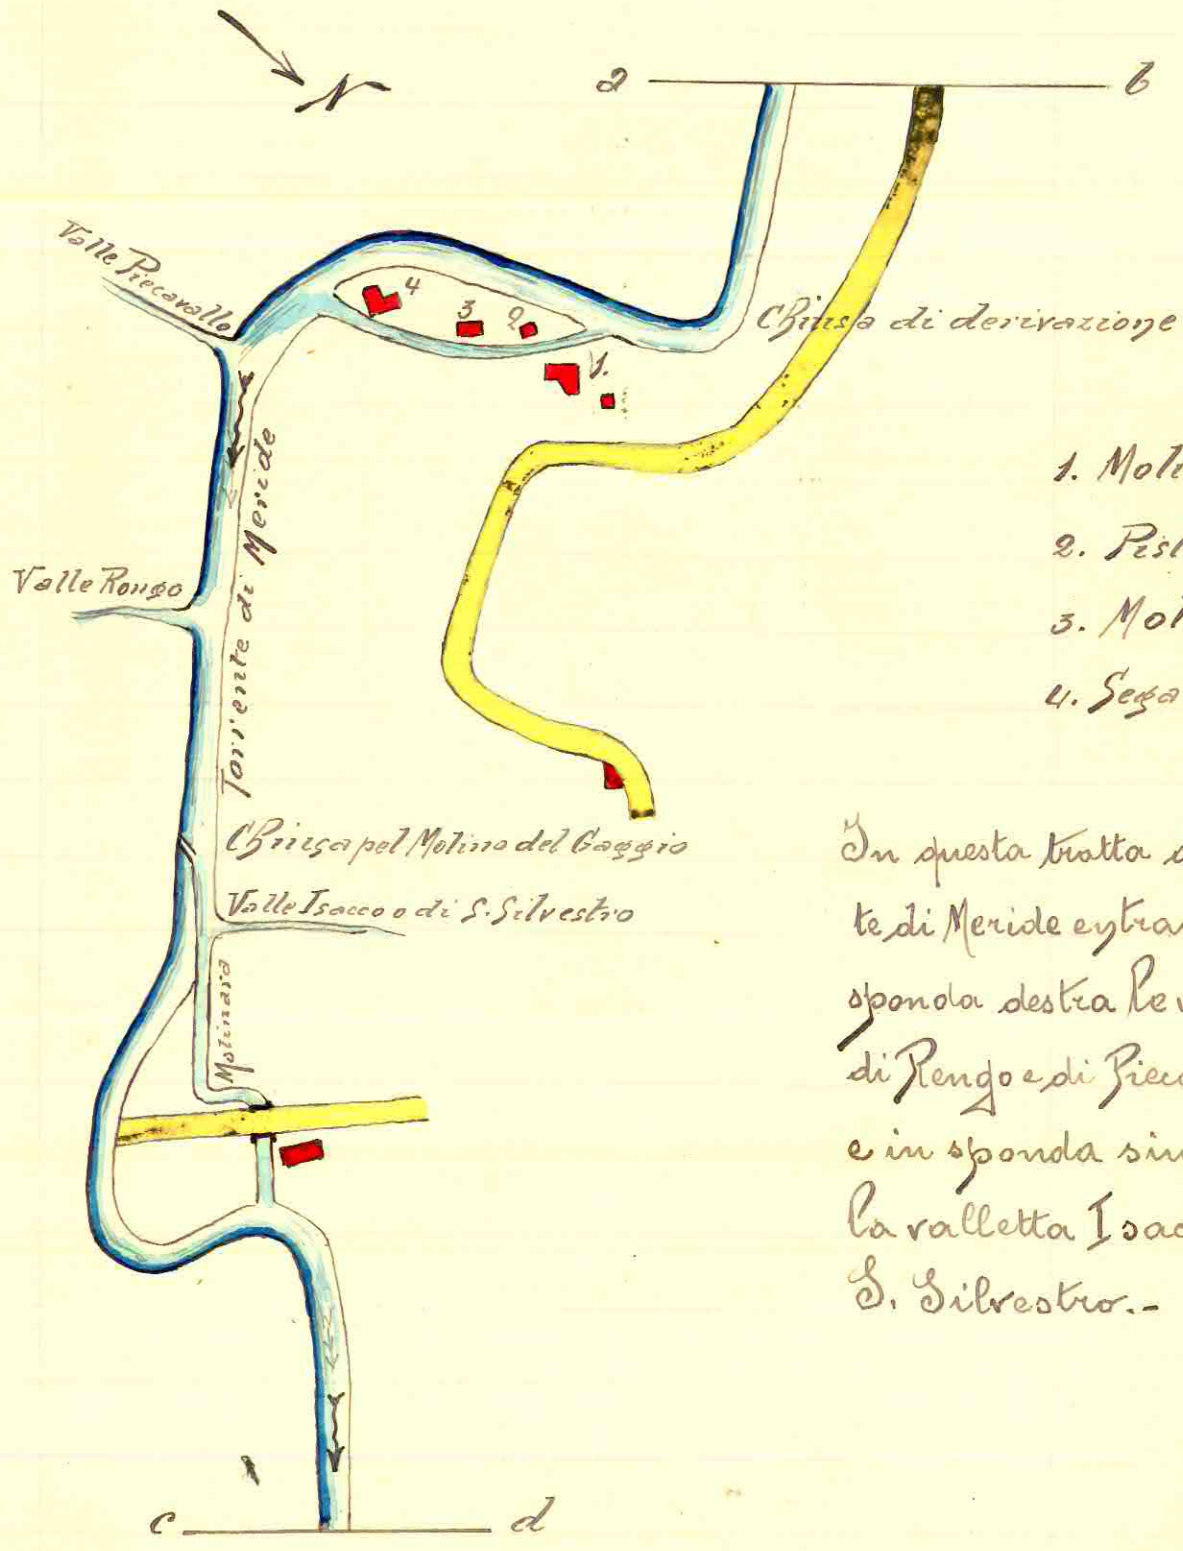 N
a b
Valle Piecavallo
4
3
2
1.
Chiusa di derivazione
Torrente di Meride
Valle Rongo
1. Moli
2. Pist
3. Mol
4. Sega
Chiusa pel Molino del Gaggio
Valle Isacco o di S. Silvestro
Molinara
In questa tratta
te di Meride entra
sponda destra le
di Rengo e di Piec
e in sponda sin
la valletta Isac
S. Silvestro.-
c d